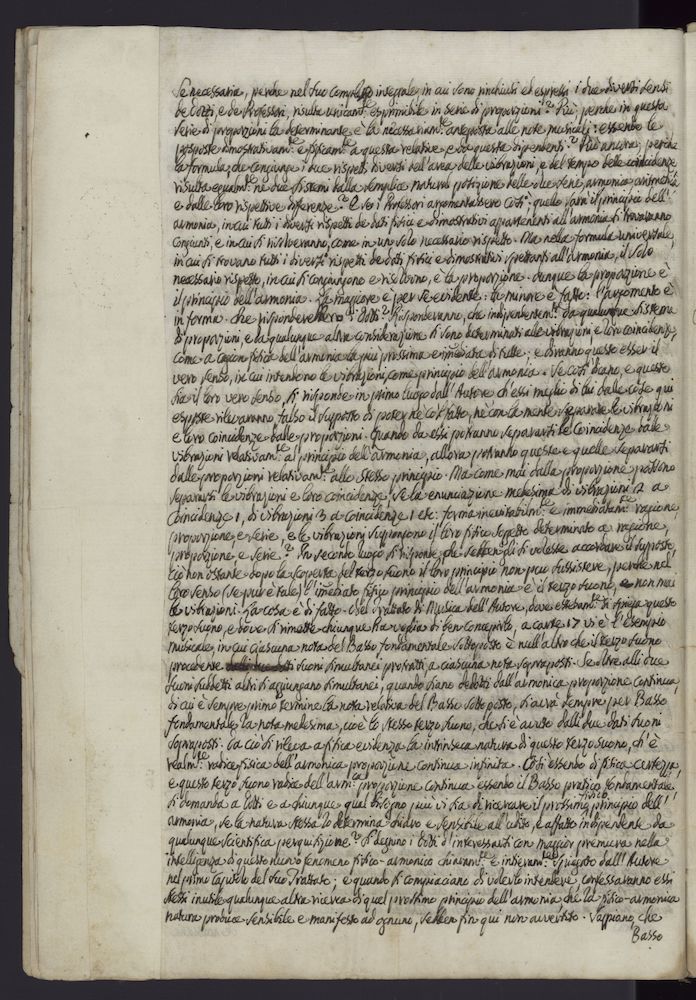 Se necessaria, perche nel suo complesso integrale, in cui sono rinchiusi ed espressi i due diversi sensi
de Dotti, e de Professori, risulta unicam.te esprimibile in serie di proporzioni? Più, perche in questa
serie di proporzioni la determinante è la necessariam.te anteposta alle note musicali: essendo le
proposte dimostrativam.te e fisicam.te a questa relative, e da questa dipendenti? Più ancora, perche
la formula, che congiunge i due rispetti diversi dell'area delle vibrazioni, e del tempo delle coincidenze
risulta egualm.te ne due sistemi dalla semplice natural posizione delle due serie, armonica aritmetica
e dalle loro rispettive differenze? E se i Professori argomentassero così: quello sarà il principio dell'
armonia, in cui tutti i diversi rispetti de dati fisici e dimostrativi appartenenti all'armonia si troveranno
congiunti, e in cui si risolveranno, come in uno solo necessario rispetto. Ma nella formula universale,
in cui si trovano tutti i diversi rispetti de dati fisici e dimostrativi spettanti all'Armonia, il solo
necessario rispetto, in cui si congiungono e risolvono, è la proporzione. dunque la proporzione è
il principio dell'armonia. La maggiore è per se evidente: la minore è fatto: l'argomento è
in forma. Che risponderebbero i Dotti? Risponderanno, che independentem.te da qualunque sistema
di proporzioni, e da qualunque altra considerazione si sono determinati alle vibrazioni, e loro coincidenze,
come a cagion fisica dell'armonia la più prossima e im̃ediata di tutte; e diranno questo esser il
vero senso, in cui intendono le vibrazioni come principio dell'armonia. Se così diano, e questo
sia il loro vero senso, si risponde in primo luogo dall'Autore, ch'essi meglio di lui dalle cose qui
esposte rileveranno, falso il supposto di poter ne col fatto, ne con la mente separare le vibrazioni
e loro coincidenze dalle proporzioni. Quando da essi potranno separarsi le coincidenze dalle
vibrazioni relativam.te al principio dell'armonia, allora potranno queste e quelle separarsi
dalle proporzioni relativam.te allo stesso principio. Ma come mai dalla proporzione possono
separarsi le vibrazioni e loro coincidenze, se la enunciazione medesima di vibrazioni 2 a
coincidenze 1, di vibrazioni 3 a coincidenze 1 etc. forma inevitabilm.te e immediatam.te ragione,
proporzione, e serie, e le vibrazioni suppongono il loro fisico soggetto determinato a ragione,
proporzione, e serie? In secondo luogo si risponde, che sebben gli si volesse accordare il supposto,
ciò non ostante dopo la scoperta del terzo suono il loro principio non può sussistere, perche nel
loro senso (se pur è tale) l'im̃ediato fisico principio dell'armonia è il terzo suono, e non mai
le vibrazioni. La cosa è di fatto. Nel Trattato di Musica dell'Autore, dove estesam.te si spiega questo
terzo suono, e dove si rimette chiunque ha voglia di ben concepirlo, a carte 17 vi è l'esempio
musicale, in cui ciascuna nota del Basso fondamentale sottoposto è null'altro che il terzo suono
procedente suoni simultanei protratti a ciascuna nota sopraposti. Se oltre alli due
suoni suddetti altri si aggiungano simultanei, quando siano dedotti dall'armonica proporzione continua,
di cui è sempre primo termine la nota relativa del Basso sottoposto, si avrà sempre per Basso
fondamentale la nota medesima, cioè lo stesso terzo suono, che si è avuto dalli due dati suoni
sopraposti. Da ciò si rileva a fisica evidenza la intrinseca natura di questo terzo suono, ch'è
realm.te radice fisica dell'armonica proporzione continua infinita. Così essendo di fisica certezza,
e questo terzo suono radice dell'arm.ca proporzione continua essendo il Basso pratico fondamentale,
si domanda a Dotti e a chiunque qual bisogno più vi sia di ricercare il prossimo fisico principio dell'
armonia, se la natura stessa lo determina chiaro e sensibile all'udito, e affatto indipendente da
qualunque scientifica perquisizione? Si degnino i Dotti d'interessarsi con maggior premura nella
intelligenza di questo nuovo fenomeno fisico-armonico chiaram.te e intieram.te spiegato dall'Autore
nel primo Capitolo del suo Trattato; e quando si compiacciano di volerlo intendere, confesseranno essi
stessi inutile qualunque altra ricerca di quel prossimo principio dell'armonia che la fisico-armonica
natura produce sensibile e manifesto ad ognuno, sebben fin qui non avvertito. Sappiano, che
Basso